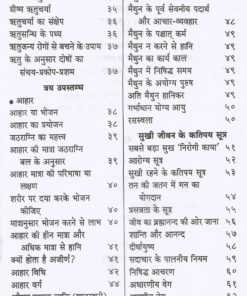 ग्रीष्म ऋतुचर्या ३५
ऋतुचर्या का संक्षेप ३६
ऋतुसन्धि के पथ्य ३६
ऋतुजन्य रोगों से बचने के उपाय ३७
ऋतु के अनुसार दोषों का
संचय-प्रकोप-प्रशम ३७
त्रय उपस्तम्भ
● आहार
आहार या भोजन ३८
आहार का प्रयोजन ३८
जठराग्नि का महत्त्व ३९
आहार की मात्रा जठराग्नि
बल के अनुसार ३९
आहार मात्रा की परिभाषा या
लक्षण ४०
शरीर पर दया करके भोजन
कीजिए ४०
मात्रानुसार भोजन करने से लाभ ४०
आहार की हीन मात्रा और
अधिक मात्रा से हानि ४१
क्यों होता है अजीर्ण? ४१
आहार विधि ४२
आहार वर्ग ४४
मैथुन के पूर्व सेवनीय पदार्थ
और आचार-व्यवहार ४८
मैथुन के पश्चात् कर्म ४९
मैथुन न करने से हानि ४९
मैथुन का कार्य काल ४९
मैथुन में निषिद्ध समय ४९
मैथुन के अयोग्य पुरुष ४९
अति मैथुन हानिकर ४९
गर्भाधान योग्य आयु ५०
रजस्वला ५०
सुखी जीवन के कतिपय सूत्र
सबसे बड़ा सुख 'निरोगी काया' ५१
आरोग्य सूत्र ५२
सुखी रहने के कतिपय सूत्र ५३
तन की जतन में मन का
योगदान ५४
प्रसन्नता के सूत्र ५५
जीव का ब्रह्मानन्द की ओर जाना ५६
शान्ति और आनन्द ५७
दीर्घायुष्य ५८
सदाचार के पालनीय नियम ५९
निषिद्ध आचरण ६०
अधारणीय वेग ६१